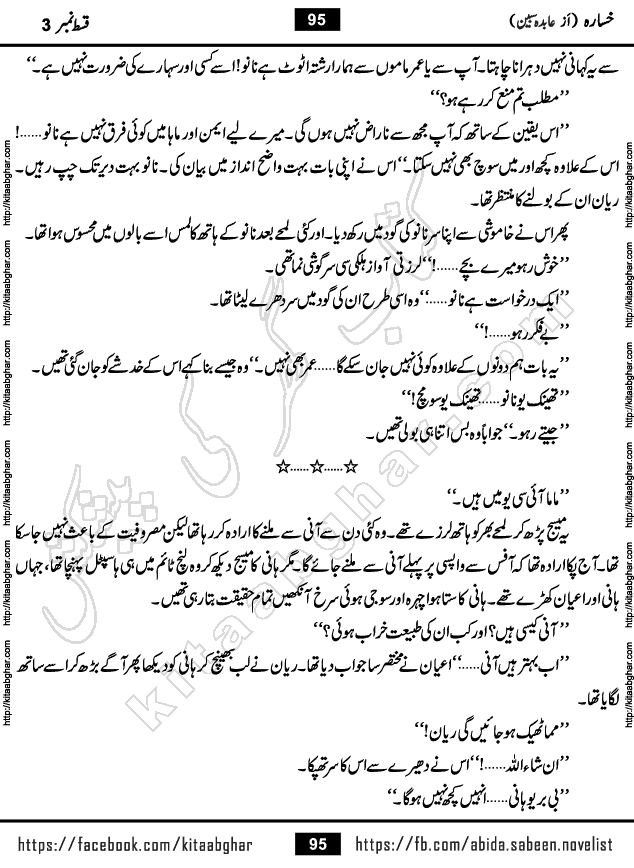 خسارہ (از عابدہ سبین) 95 قسط نمبر 3
سے یہ کہانی نہیں دہرانا چاہتا۔ آپ سے یا عمر ماموں سے ہمارا رشتہ اٹوٹ ہے نانو! اسے کسی اور سہارے کی ضرورت نہیں ہے۔‘‘
’’مطلب تم منع کر رہے ہو؟‘‘
’’اس یقین کے ساتھ کہ آپ مجھ سے ناراض نہیں ہوں گی۔ میرے لیے ایمن اور ماہا میں کوئی فرق نہیں ہے نانو......!
اس کے علاوہ کچھ اور میں سوچ بھی نہیں سکتا۔‘‘ اس نے اپنی بات بہت واضح انداز میں بیان کی۔ نانو بہت دیر تک چپ رہیں۔
ریان ان کے بولنے کا منتظر تھا۔
پھر اس نے خاموشی سے اپنا سر نانو کی گود میں رکھ دیا۔ اور کئی لمحے بعد نانو کے ہاتھ کا لمس اسے بالوں میں محسوس ہوا تھا۔
’’خوش رہو میرے بچے......!‘‘ لرزتی آواز ہلکی سی سرگوشی نما تھی۔
’’ایک درخواست ہے نانو......‘‘ وہ اسی طرح ان کی گود میں سر دھرے لیٹا تھا۔
’’بے فکر رہو......!‘‘
’’یہ بات ہم دونوں کے علاوہ کوئی نہیں جان سکے گا...... عمر بھی نہیں۔‘‘ وہ جیسے بنا کہے اس کے خدشے کو جان گئی تھیں۔
’’تھینک یو نانو...... تھینک یو سو مچ!‘‘
’’جیتے رہو۔‘‘ جواباً وہ بس اتنا ہی بولی تھیں۔
☆......☆......☆
’’ماما آئی سی یو میں ہیں۔‘‘
یہ میسج پڑھ کر لمحے بھر کو ہاتھ لرزے تھے۔ وہ کئی دن سے آنی سے ملنے کا ارادہ کر رہا تھا لیکن مصروفیت کے باعث نہیں جا سکا
تھا۔ آج پکا ارادہ تھا کہ آفس سے واپسی پر پہلے آنی سے ملنے جائے گا۔ مگر ہانی کا میسج دیکھ کر وہ لنچ ٹائم میں ہی ہاسپٹل پہنچا تھا، جہاں
ہانی اور اعیان کھڑے تھے۔ ہانی کا ستا ہوا چہرہ اور سوجی ہوئی سرخ آنکھیں تمام حقیقت بتا رہی تھیں۔
’’آنی کیسی ہیں؟ اور کب ان کی طبیعت خراب ہوئی؟‘‘
’’اب بہتر ہیں آنی......‘‘ اعیان نے مختصر سا جواب دیا تھا۔ ریان نے لب بھینچ کر ہانی کو دیکھا پھر آگے بڑھ کر اسے ساتھ
لگایا تھا۔
’’مما ٹھیک ہو جائیں گی ریان!‘‘
’’ان شاء اللہ......!‘‘ اس نے دھیرے سے اس کا سر تھپکا۔
’’بی بریو ہانی...... انہیں کچھ نہیں ہوگا۔‘‘
http://kitaabghar.com http://kitaabghar.com http://kitaabghar.com http://kitaabghar.com http://kitaabghar.com http://kitaabghar.com
http://kitaabghar.com http://kitaabghar.com http://kitaabghar.com http://kitaabghar.com http://kitaabghar.com http://kitaabghar.com
کتاب گھر کی پیشکش
kitaabghar.com
https://facebook.com/kitaabghar 95 https://fb.com/abida.sabeen.novelist